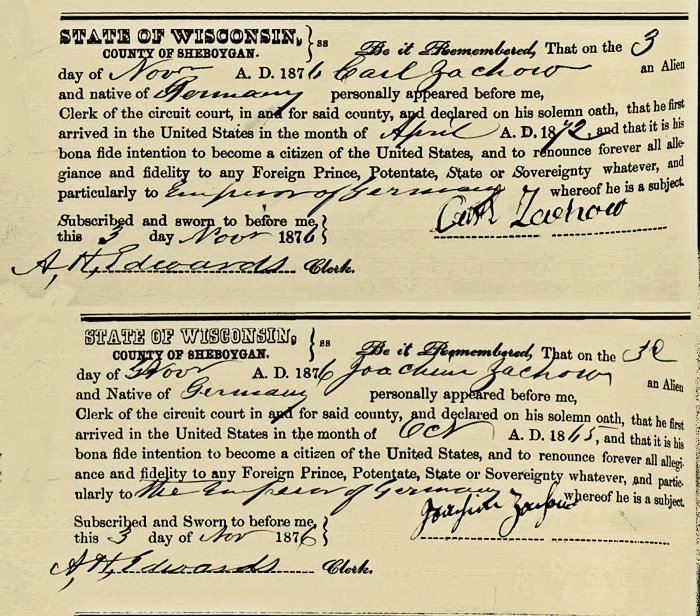 STATE OF WISCONSIN, } ss Be it Remembered, That on the 3
COUNTY OF SHEBOYGAN.
day of Novr A. D. 1876 Carl Zachow an Alien
and native of Germany personally appeared before me,
Clerk of the circuit court, in and for said county, and declared on his solemn oath, that he first
arrived in the United States in the month of April A. D. 1872, and that it is his
bona fide intention to become a citizen of the United States, and to renounce forever all alle-
giance and fidelity to any Foreign Prince, Potentate, State or Sovereignty whatever, and
particularly to Emperor of Germany whereof he is a subject.
Subscribed and sworn to before me, } Carl Zachow
this 3 day Novr 1876
A, H, Edwards Clerk.
STATE OF WISCONSIN, } ss Be it Remembered, That on the 3d
COUNTY OF SHEBOYGAN.
day of Novr A. D. 1876 Joachim Zachow an Alien
and Native of Germany personally appeared before me,
Clerk of the circuit court in and for said county, and declared on his solemn oath, that he first
arrived in the United States in the month of Oct A. D. 1865, and that it is his
bona fide intention to become a citizen of the United States, and to renounce forever all allegi-
ance and fidelity to any Foreign Prince, Potentate, State or Sovereignty whatever, and partic-
ularly to The Emperor of Germany whereof he is a subject.
Subscribed and Sworn to before me, } Zachow
this 3 day of Nov 1876
A, H, Edwards Clerk.